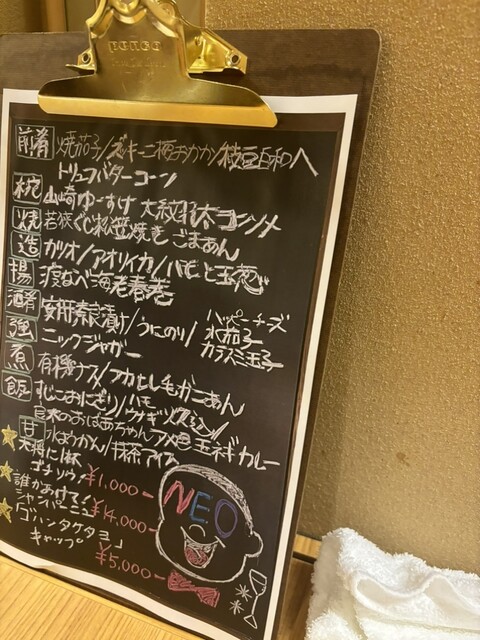 penco
前肴 焼茄子/ズッキーニ柚おかか/枝豆白和へ
トリュフバターコーン
椀 山崎ゆーすけ 大紋羽太コンソメ
焼 若狭ぐじ松笠焼き ごまあん
造 カツオ/アオリイカ/ハモと玉葱
揚 渡なべ海老春巻
酒肴 安肝奈良漬け/うにのり/ハッピーチーズ
水茄子
カラスミ玉子
強 ニックジャガー
煮 有機ナス/フカヒレ毛ガニあん
飯 すじこおにぎり/ハモ/ウナギ
のおばあちゃんアメ色玉ネギカレー
甘 水ようかん/抹茶アイス
大将に1杯
ゴチソウ! ¥1,000-
誰かあけて!
シャンパーニュ ¥14,000-
「ゴハンタケタヨ」
キャップ ¥5,000-
NEO